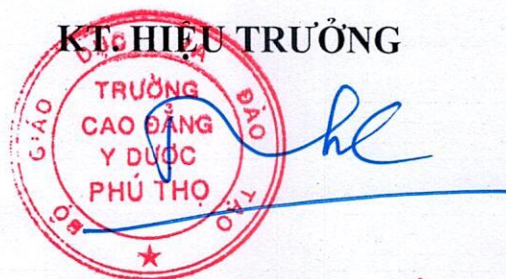 KT. HIỆU TRƯỞNG
BỘ GIÁO DỤC VÀ ĐÀO TẠO
TRƯỜNG
CAO ĐẲNG
Y DƯỢC
PHÚ THỌ